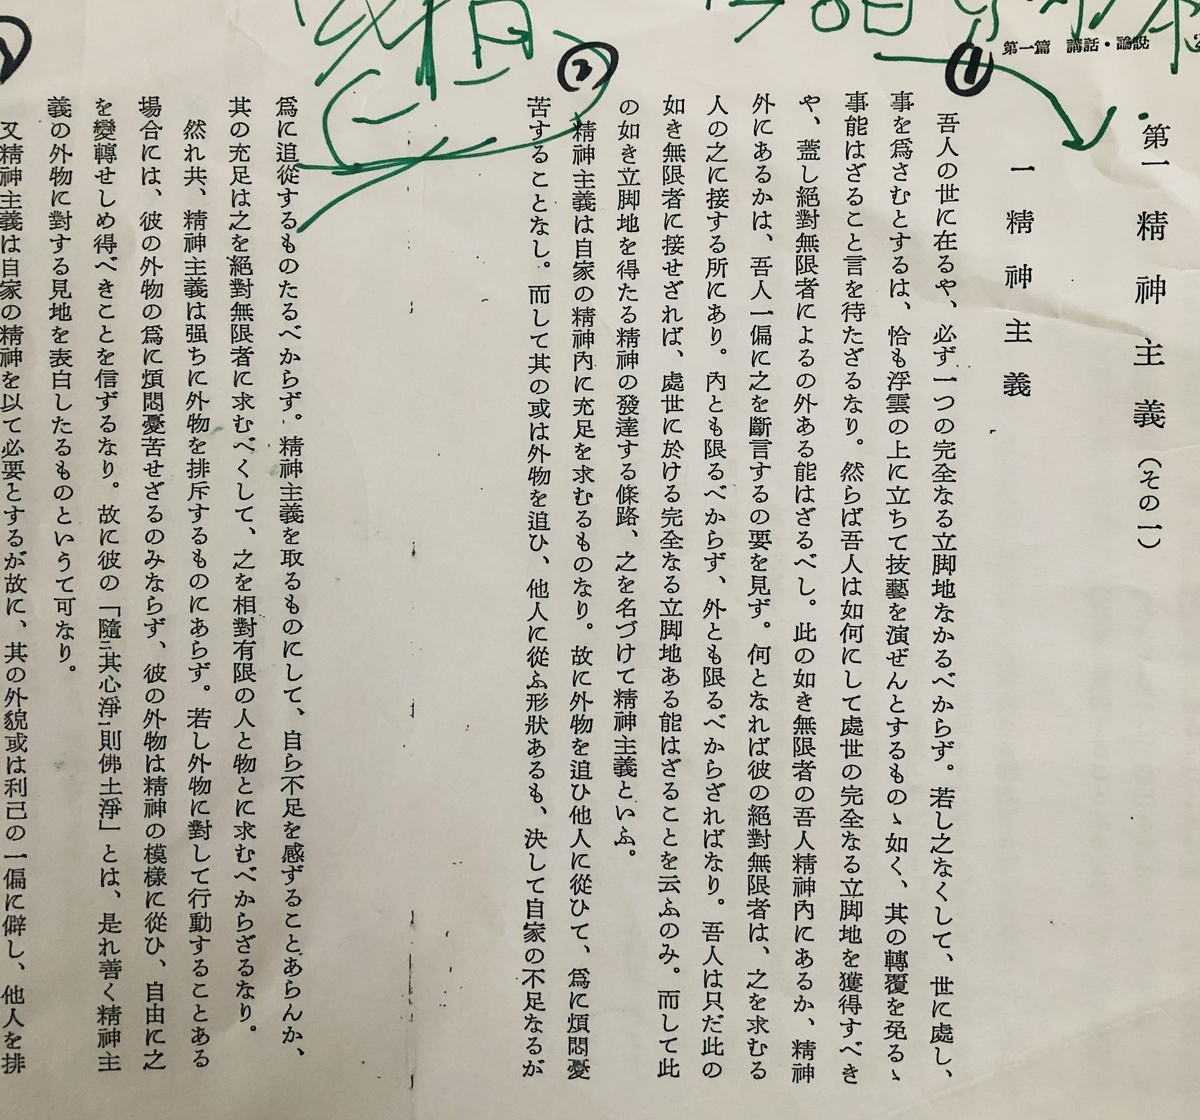 第一篇 講話・論説
第一 精神主義（その一）
一 精神主義
吾人の世に在るや、必ず一つの完全なる立脚地なかるべからず。若し之なくして、世に處し、
事を爲さむとするは、恰も浮雲の上に立ちて技藝を演ぜんとするものゝ如く、其の轉覆を免るゝ
事能はざること言を待たざるなり。然らば吾人は如何にして處世の完全なる立脚地を獲得すべき
や、蓋し絕對無限者によるの外ある能はざるべし。此の如き無限者の吾人精神內にあるか、精神
外にあるかは、吾人一偏に之を斷言するの要を見ず。何となれば彼の絕對無限者は、之を求むる
人の之に接する所にあり。內とも限るべからず、外とも限るべからざればなり。吾人は只だ此の
如き無限者に接せざれば、處世に於ける完全なる立脚地ある能はざることを云ふのみ。而して此
の如き立脚地を得たる精神の發達する條路、之を名づけて精神主義といふ。
②
精神主義は自家の精神內に充足を求むるものなり。故に外物を追ひ他人に從ひて、爲に煩悶憂
苦することなし。而して其の或は外物を追ひ、他人に從ふ形狀あるも、決して自家の不足なるが
爲に追從するものたるべからず。精神主義を取るものにして、自ら不足を感ずることあらんか、
其の充足は之を絕對無限者に求むべくして、之を相對有限の人と物とに求むべからざるなり。
然れ共、精神主義は强ちに外物を排斥するものにあらず。若し外物に對して行動することある
場合には、彼の外物の爲に煩悶憂苦せざるのみならず、彼の外物は精神の模樣に從ひ、自由に之
を變轉せしめ得べきことを信ずるなり。故に彼の「隨㆓其心淨㆒則佛土淨」とは、是れ善く精神主
義の外物に對する見地を表白したるものというて可なり。
又精神主義は自家の精神を以て必要とするが故に、其の外貌或は利己の一偏に僻し、他人を排